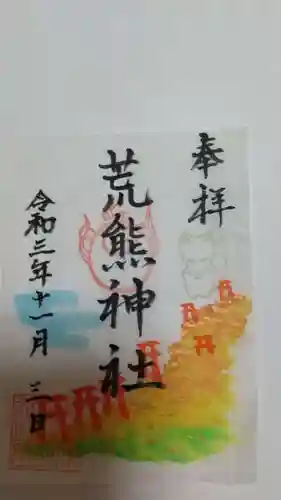 奉拝
荒熊神社
令和三年十一月三日